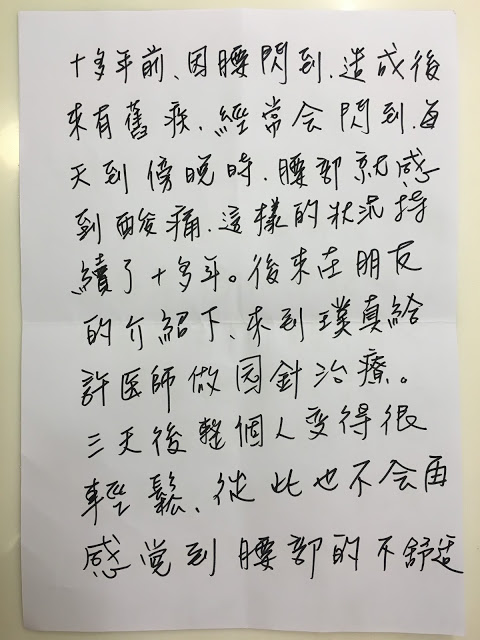 十多年前、因腰閃到、造成後
來有舊疾、經常会閃到、每
天到傍晚時、腰部就感
到酸痛、這樣的狀況持
續了十多年。後來在朋友
的介紹下、來到璞真給
許医師做园針治療。
三天後整個人变得很
輕鬆、從此也不会再
感觉到腰部的不舒适